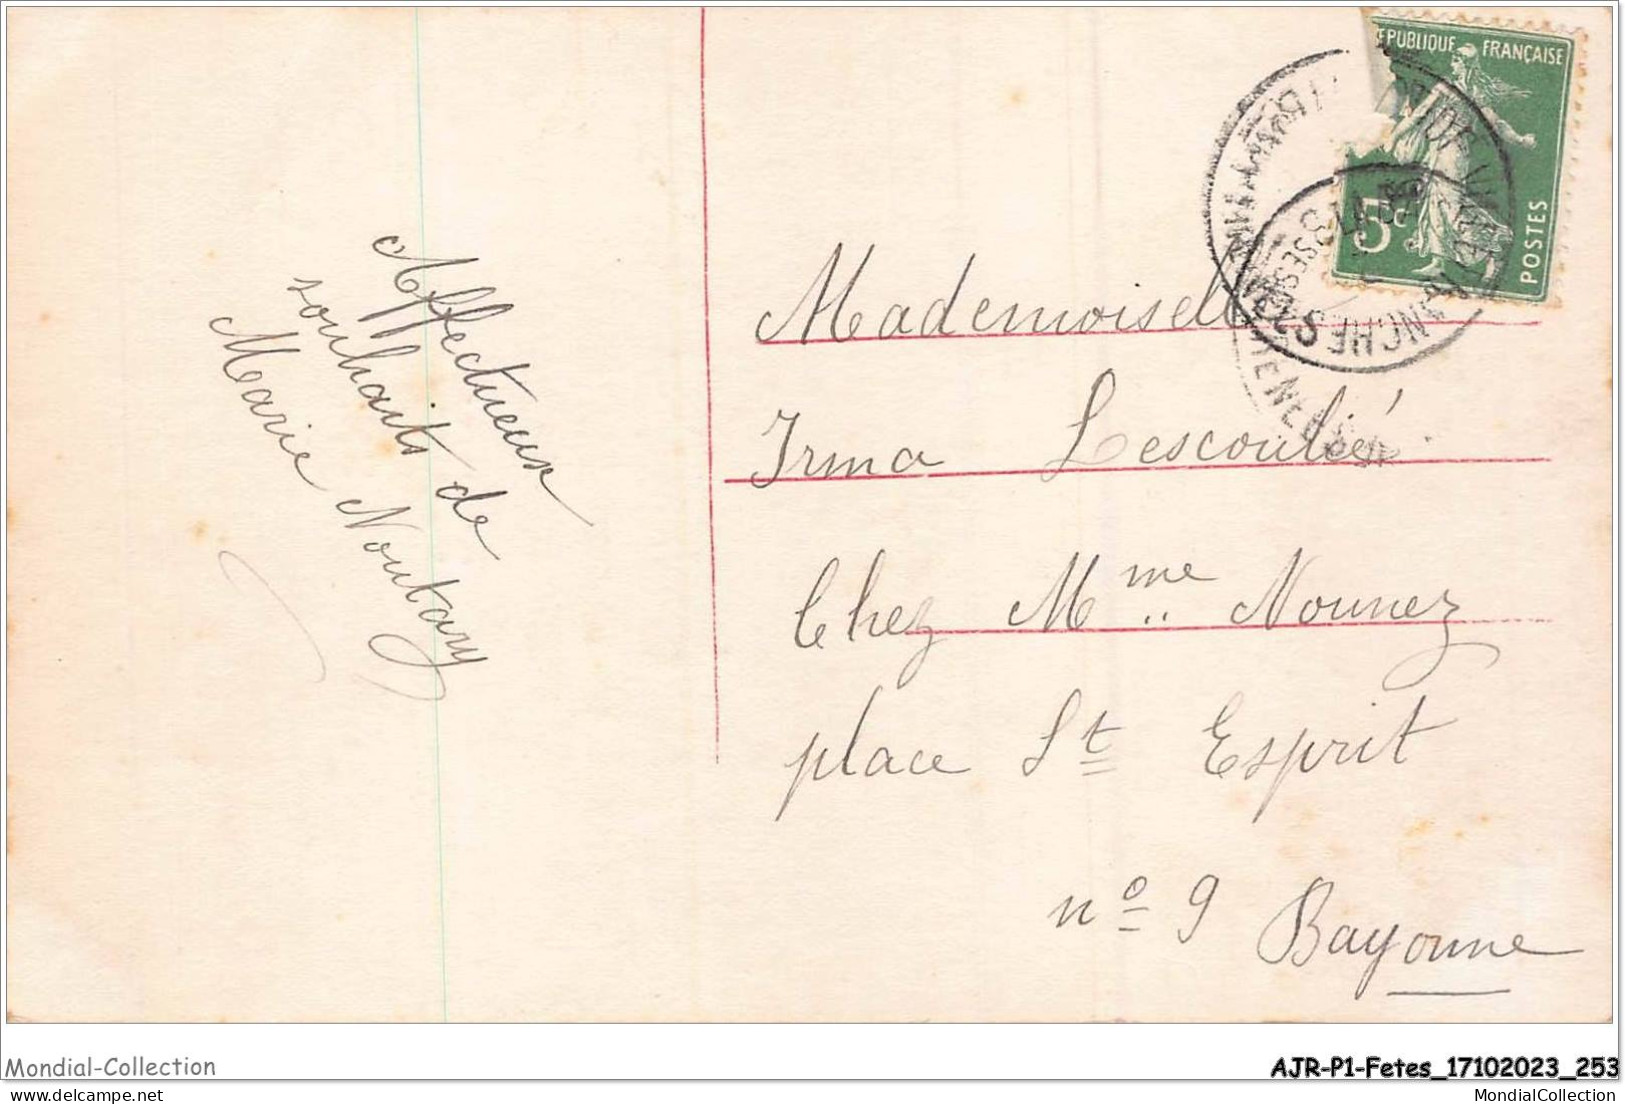 Affectueux
souhaits de
Marie Noutary
EPUBLIQUE FRANÇAISE
5c
POSTES
Mademoiselle
Irma Lescoulié
Chez Mme Nounez
place St Esprit
no 9 Bayonne
Mondial-Collection
AJR-P1-Fetes_17102023_253
delcampe.net
MondialCollection